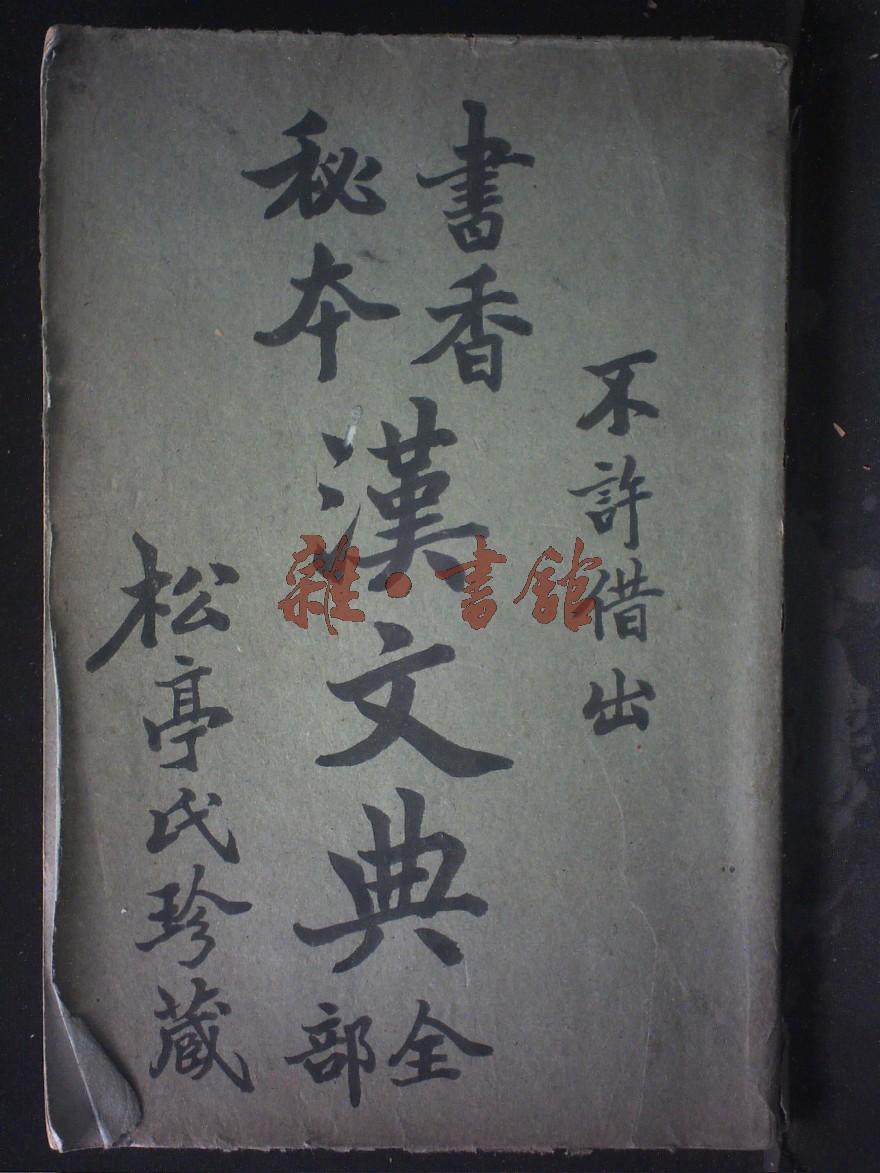 不許借出
書香
秘本
漢文典
全部
松亭氏珍藏
雜·書館